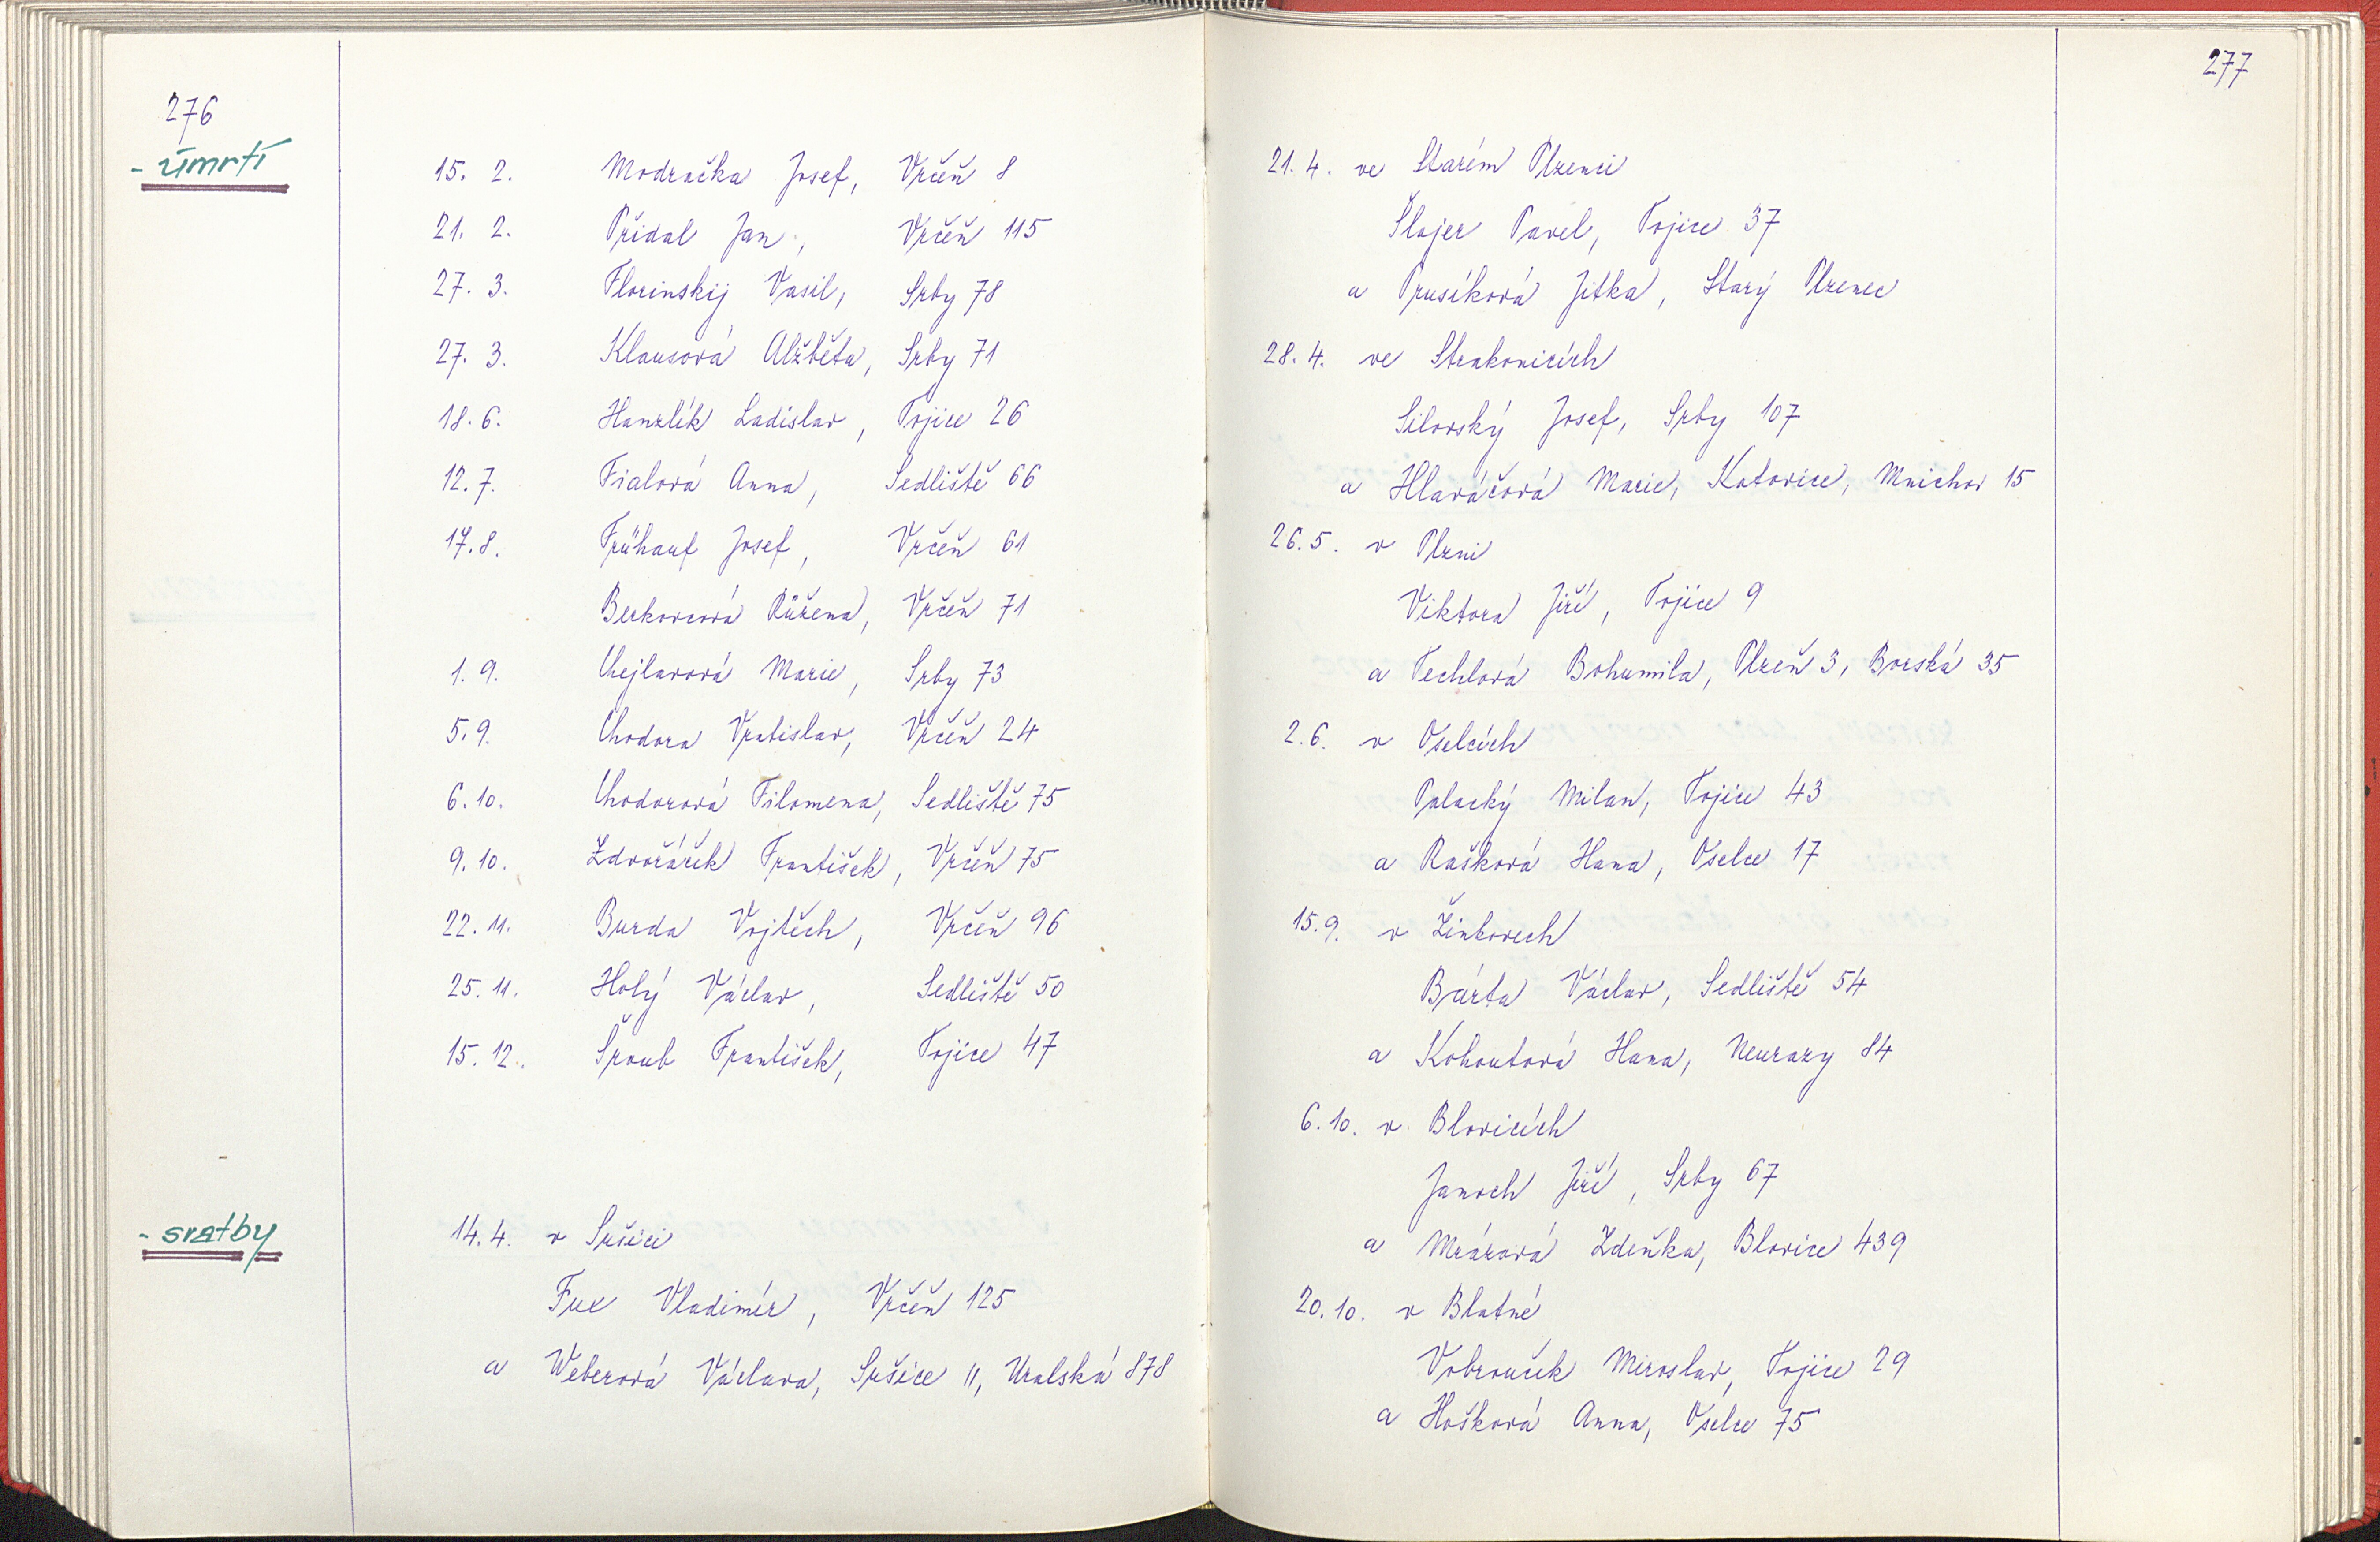 276
- úmrtí
15. 2. Modračka Josef, Vrčeň 8
21. 2. Přidal Jan, Vrčeň 115
27. 3. Florinskij Vasil, Srby 78
27. 3. Klausová Alžběta, Srby 71
18. 6. Hanzlík Ladislav, Tojice 26
12. 7. Fialová Anna, Sedliště 66
17. 8. Frühauf Josef, Vrčeň 61
Berkovcová Růžena, Vrčeň 71
1. 9. Chejlavová Marie, Srby 73
5. 9. Chodora Vratislav, Vrčeň 24
6. 10. Chodorová Filomena, Sedliště 75
9. 10. Zdvořáček František, Vrčeň 75
22. 11. Burda Vojtěch, Vrčeň 96
25. 11. Holý Václav, Sedliště 50
15. 12. Šroub František, Tojice 47
- svatby
14. 4. v Sušici
Fux Vladimír, Vrčeň 125
a Weberová Václava, Sušice II, Uralská 878
277
21. 4. ve Starém Plzenci
Šlajer Pavel, Tojice 37
a Prusíková Jitka, Starý Plzenec
28. 4. ve Strakonicích
Silovský Josef, Srby 107
a Hlaváčová Marie, Katovice, Mnichov 15
26. 5. v Plzni
Viktora Jiří, Tojice 9
a Techlová Bohumila, Plzeň 3, Borská 35
2. 6. v Oselcích
Palacký Milan, Tojice 43
a Rašková Hana, Oselce 17
15. 9. v Žinkovech
Bárta Václav, Sedliště 54
a Kohoutová Hana, Neurazy 84
6. 10. v Blovicích
Janoch Jiří, Srby 67
a Mrázová Zdeňka, Blovice 439
20. 10. v Blatné
Vobrouček Miroslav, Tojice 29
a Hošková Anna, Oselce 75